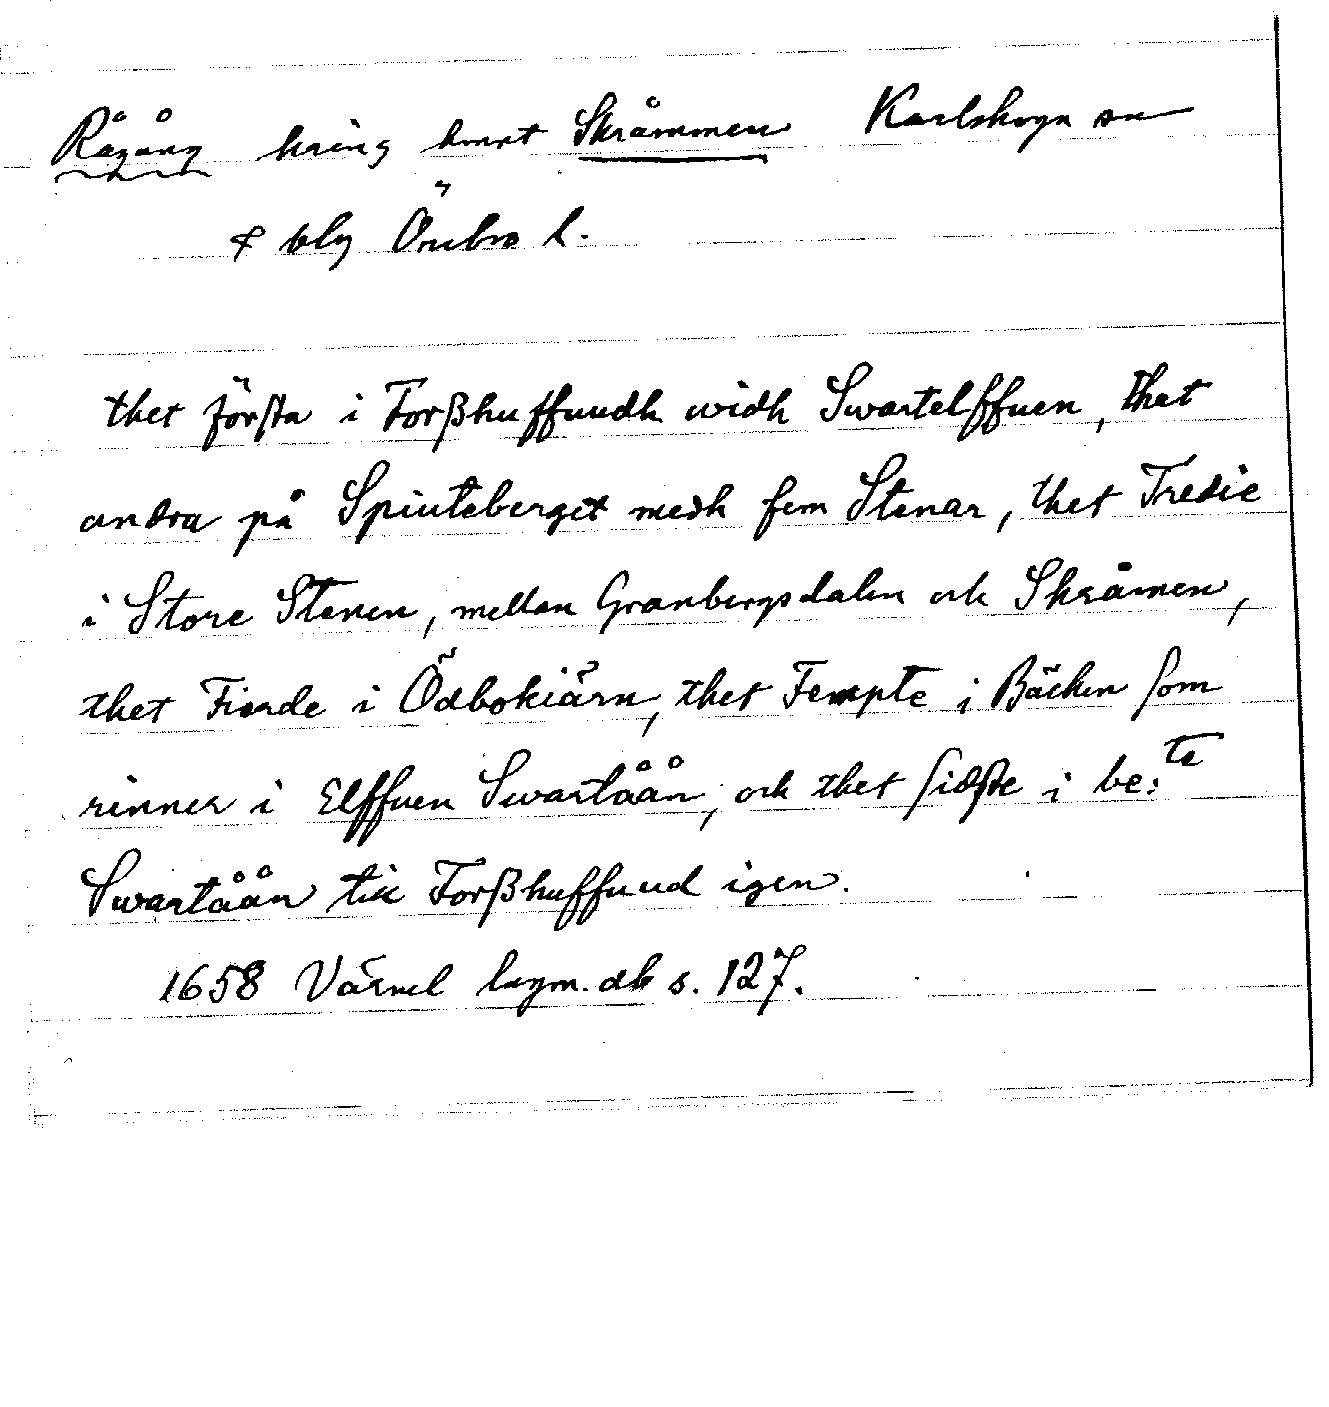 Rågång kring hmnt Skråmmen Karlskoga sn
& blg Örebro l.
thet förſta i Forßhuffuudh widh Swartelffuen, thet
andra på Spinteberget medh fem Stenar, thet Tredie
i Store Stenen, mellan Granbergsdalen och Skråmen,
thet Fierde i Ödbokiärn, thet Fempte i Bäcken ſom
rinner i Elffuen Swartåån, och thet ſidſte i be:te
Swartåån till Forßhuffuud igen.
1658 Värml lagm. db s. 127.